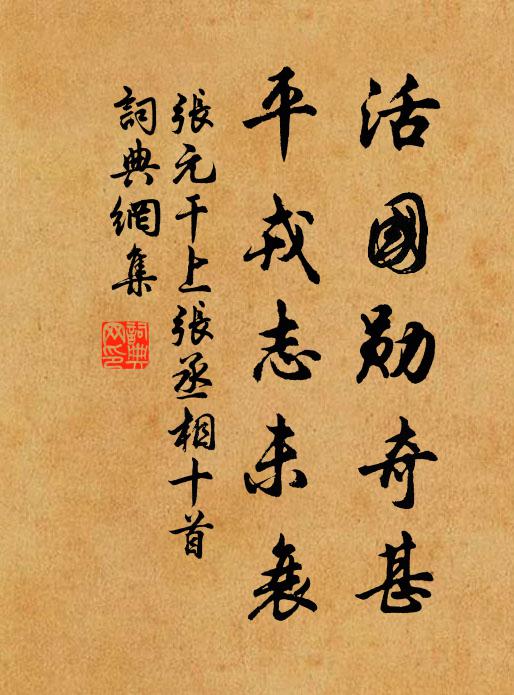 活國勛奇甚
平戎志未衰
張元干上張丞相十首
詞典網集
詞典網印